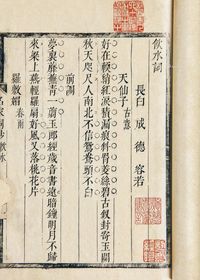 飲水詞
長白 成德 容若
天仙子 古意
好在軟綃紅淚積漏痕斜罥菱絲碧古釵封寄玉關
秋天咫尺人南北不信鴛鴦頭不白
前調
夢裏蘼蕪青一翦玉郎經歲音書遠暗鐘明月不歸
來梁上燕輕羅扇好風又落桃花片
羅敷媚